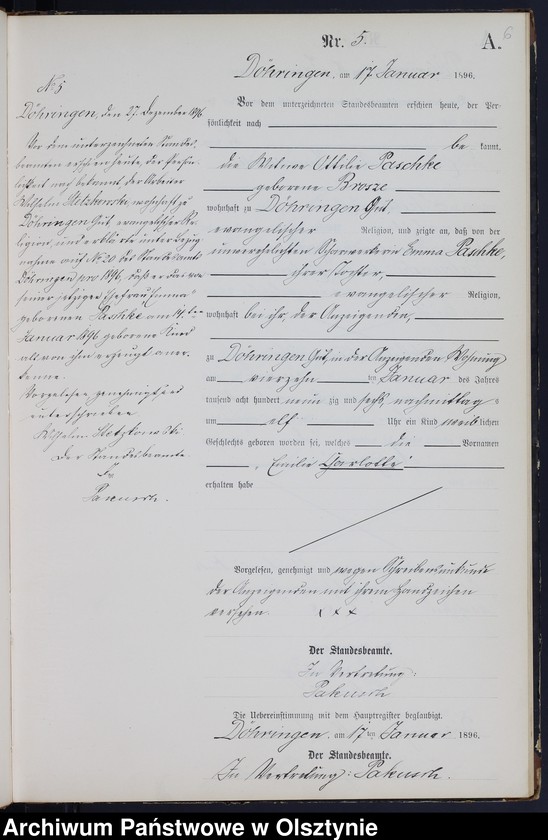 6
Nr. 5.
A.
Döhringen, am 17. Januar 1896.
Vor dem unterzeichneten Standesbeamten erschien heute, der Per-
sönlichkeit nach
be kannt,
die Witwe Ottilie Paschke
geborene Brosze
wohnhaft zu Döhringen Gut,
evangelischer Religion, und zeigte an, daß von der
unverehelichten Scharwerkerin Emma Paschke,
ihrer Tochter,
evangelischer Religion,
wohnhaft bei ihr, der Anzeigenden,
zu Döhringen Gut, in der Anzeigenden Wohnung
am vierzehn ten Januar des Jahres
tausend acht hundert neun zig und sechs, nachmittags
um elf Uhr ein Kind weib lichen
Geschlechts geboren worden sei, welches die Vornamen
"Emilie Charlotte"
erhalten habe
Vorgelesen, genehmigt und wegen Schreibensunkunde
der Anzeigenden mit ihrem Handzeichen
versehen. x x x
Der Standesbeamte.
In Vertretung:
Pakusch
Die Uebereinstimmung mit dem Hauptregister beglaubigt.
Döhringen, am 17 ten Januar 1896.
Der Standesbeamte.
In Vertretung: Pakusch.
No 5
Döhringen, den 27. Dezember 1896
Vor dem unterzeichneten Standes-
beamten erschien heute, der Persön-
lichkeit nach bekannt, der Arbeiter
Wilhelm wohnhaft zu
Döhringen Gut, evangelischer Re-
ligion, und erklärte unter Bezug-
nahme auf No 20 des Standesamts
Döhringen pro 1896, daß er das von
seiner jetzigen Ehefrau Emma
geborenen Paschke am 14. ten
Januar 1896 geborene Kind
als von ihm erzeugt aner-
kenne.
Vorgelesen, genehmigt und
unterschrieben
Wilhelm
Der Standesbeamte
Pakusch.
Archiwum Państwowe w Olsztynie